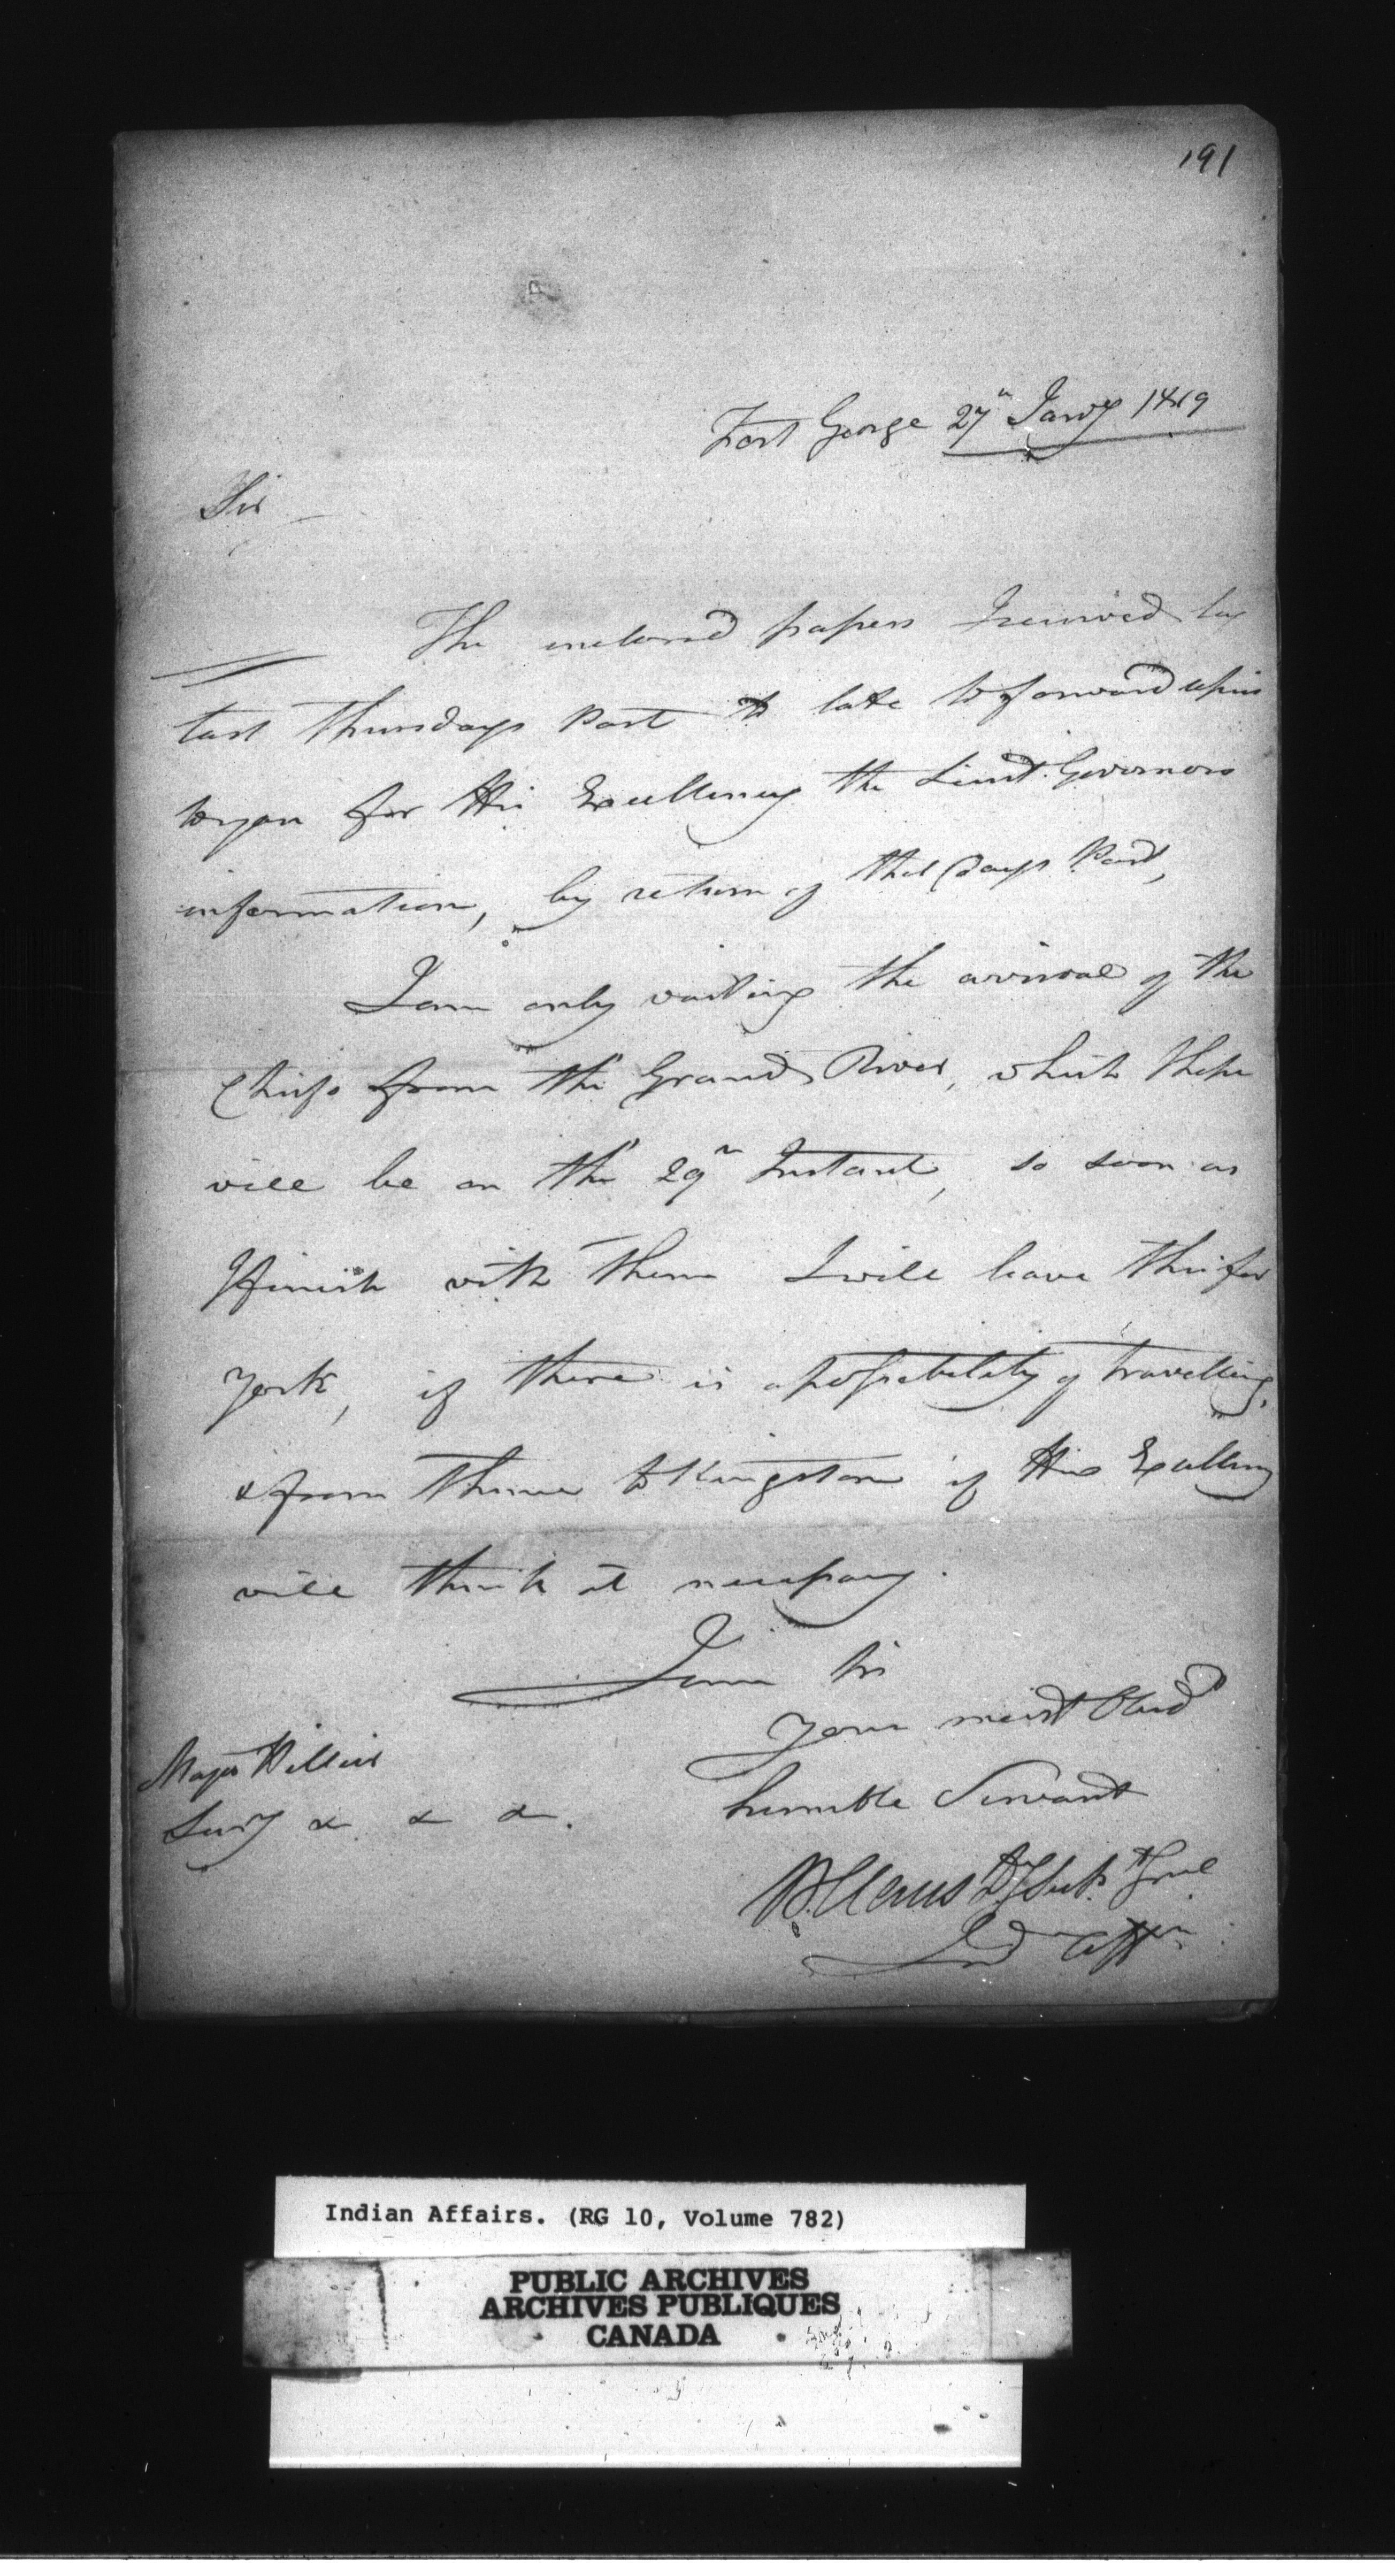 191
Fort George 27th Jany 1819
Sir
The inclosed papers I received by
last Thursdays Post to late to forward
to you for His Excellency the Lieut. Governors
information, by return of that days Post,
I am only waiting the arrival of the
Chiefs from the Grand River, which I hope
will be on the 29th Instant, so soon as
I finish with them I will leave this for
York, if there is a possibility of travelling,
& from thence to Kingston if His Excellency
will think it necessary.
I am Sir
Your most Obed
humble Servant
W. Claus D. Supt. Genl
Ind Affrs
Major Hillier
Secy & & &.
Indian Affairs. (RG 10, Volume 782)
PUBLIC ARCHIVES
ARCHIVES PUBLIQUES
CANADA